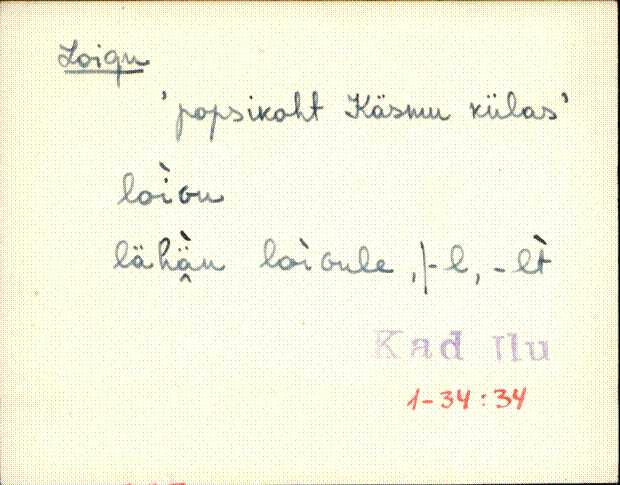 Loigu
'popsikoht Käsmu külas'
loìɢu
lähä̭̀n loìɢule, |-l, -lt̀
Kad Ilu
1-34:34